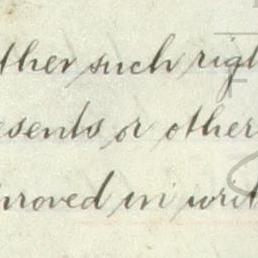 ther such righ
esents or other
proved in writ